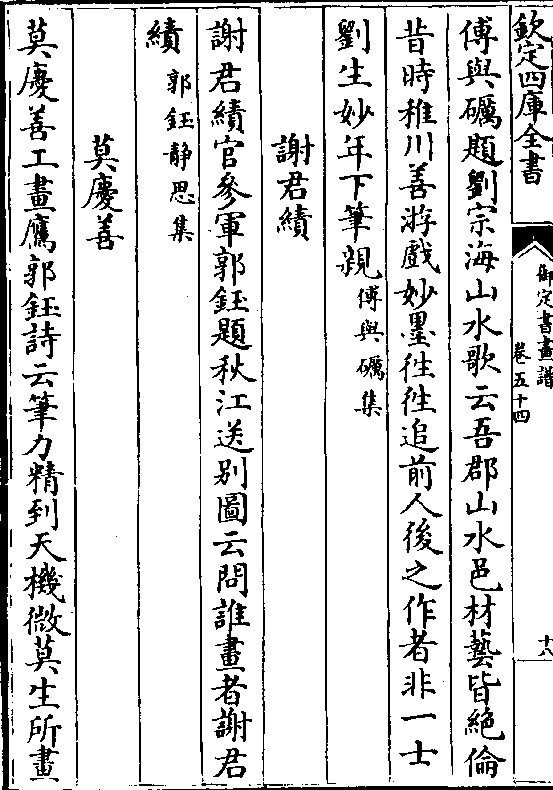 欽定四庫全書
御定書畫譜
卷五十四
十八
傅與礪題劉宗海山水歌云吾郡山水邑材藝皆絶倫
昔時稚川善游戲妙墨徃徃追前人後之作者非一士
劉生妙年下筆親傅與礪集
謝君績
謝君績官參軍郭鈺題秋江送别圖云問誰畫者謝君
績郭鈺静思集
莫慶善
莫慶善工畫鷹郭鈺詩云筆力精到天機微莫生所畫